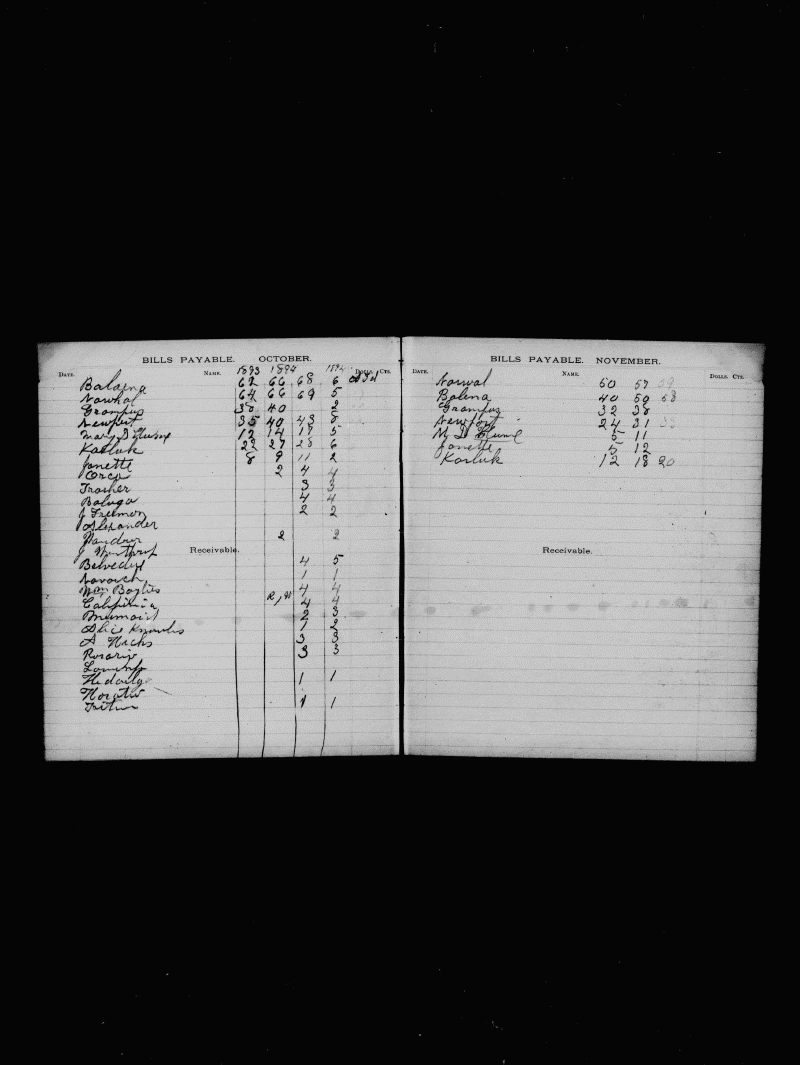 BILLS PAYABLE. OCTOBER.
DATE. NAME. DOLLS. CTS.
1893 1894 1894
Balaena 62 66 68 6
Narwhal 64 66 69 5
Grampus 38 40 2
Newport 35 40 43 8
Mary D Hume 12 14 17 5
Karluk 22 27 28 6
Janette 8 9 11 2
Orca 2 4 4
Trasher 3 3
Baluga 4 4
J Freemon 2 2
Alexander
Wandrur 2 2
J Winthrop
Receivable.
Belveder 4 5
Navarch 1 1
Wm Baylies 4 4
California 4 4
Mermaid 2 3
Alice Knowles 1 2
A Hicks 3 3
Rosario 3 3
Hedailgo 1 1
Horatio
Triton 1 1
BILLS PAYABLE. NOVEMBER.
DATE. NAME. DOLLS. CTS.
Norwal 50 57 59
Balena 40 50 58
Grampus 32 38
Newport 24 31 33
M D Hume 5 11
Janette 5 12
Karluk 12 18 20
Receivable.